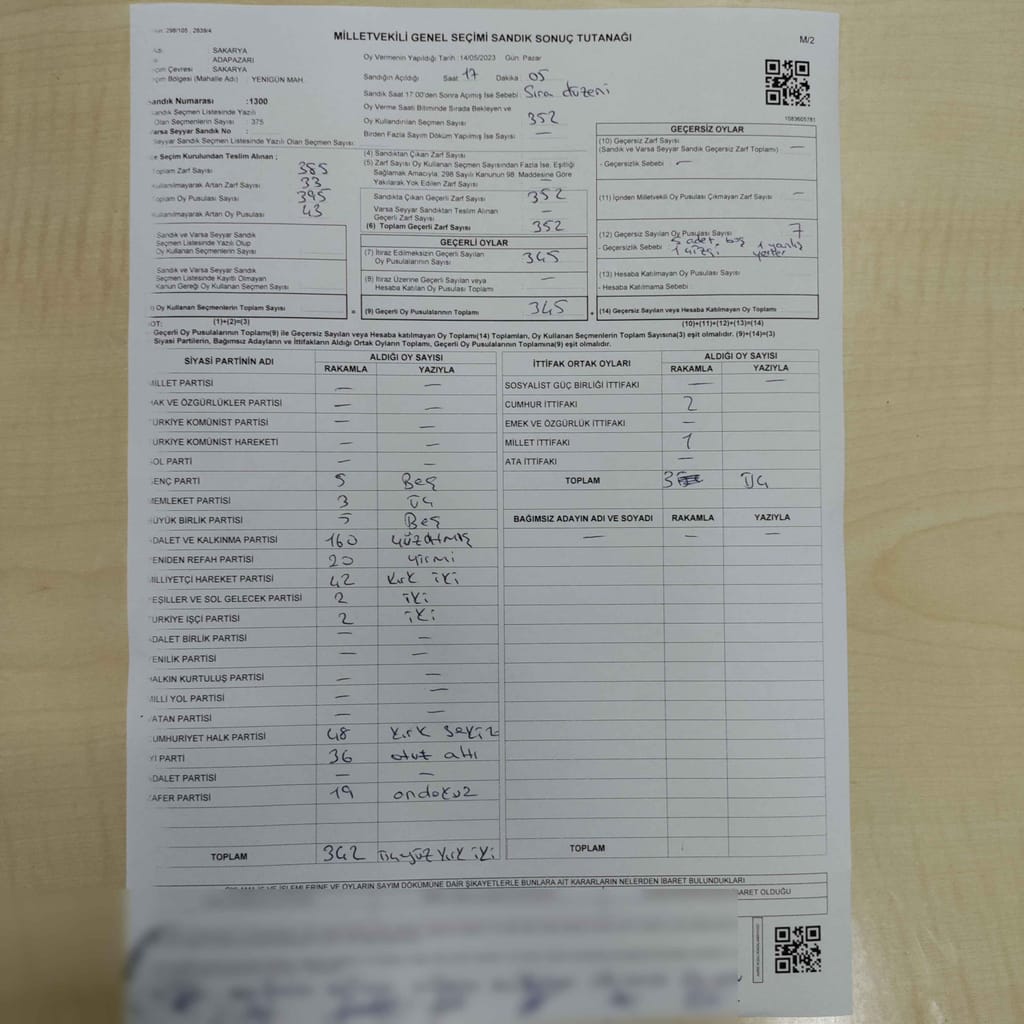 298/105 , 2839/4
MİLLETVEKİLİ GENEL SEÇİMİ SANDIK SONUÇ TUTANAĞI
M/2
: SAKARYA
: ADAPAZARI
Çevresi : SAKARYA
Bölgesi (Mahalle Adı) : YENİGÜN MAH.
Sandık Numarası :1300
Sandık Seçmen Listesinde Yazılı
Olan Seçmenlerin Sayısı : 375
Varsa Seyyar Sandık No :
Seyyar Sandık Listesinde Yazılı Olan Seçmen Sayısı:
Oy Vermenin Yapıldığı Tarih :14/05/2023 Gün: Pazar
Sandığın Açıldığı Saat: 17 Dakika : 05
Sandık Saat 17:00'den Sonra Açılmış İse Sebebi: Sıra düzeni
Oy Verme Saati Bitiminde Sırada Bekleyen ve
Oy Kullandırılan Seçmen Sayısı 352
Birden Fazla Sayım Döküm Yapılmış İse Sayısı : —
1083605781
e Seçim Kurulundan Teslim Alınan ;
Toplam Zarf Sayısı 385
Kullanılmayarak Artan Zarf Sayısı 33
Toplam Oy Pusulası Sayısı 395
Kullanılmayarak Artan Oy Pusulası 43
Sandık ve Varsa Seyyar Sandık
Seçmen Listesinde Yazılı Olup
Oy Kullanan Seçmenlerin Sayısı
Sandık ve Varsa Seyyar Sandık
Seçmen Listesinde Kayıtlı Olmayan
Kanun Gereği Oy Kullanan Seçmen Sayısı
Oy Kullanan Seçmenlerin Toplam Sayısı
(1)+(2)=(3)
(4) Sandıktan Çıkan Zarf Sayısı
(5) Zarf Sayısı Oy Kullanan Seçmen Sayısından Fazla İse, Eşitliği
Sağlamak Amacıyla, 298 Sayılı Kanunun 98. Maddesine Göre
Yakılarak Yok Edilen Zarf Sayısı —
Sandıkta Çıkan Geçerli Zarf Sayısı 352
Varsa Seyyar Sandıktan Teslim Alınan
Geçerli Zarf Sayısı —
(6) Toplam Geçerli Zarf Sayısı 352
GEÇERLİ OYLAR
(7) İtiraz Edilmeksizin Geçerli Sayılan
Oy Pusulalarının Sayısı 345
(8) İtiraz Üzerine Geçerli Sayılan veya
Hesaba Katılan Oy Pusulası Toplamı —
= (9) Geçerli Oy Pusulalarının Toplamı 345
GEÇERSİZ OYLAR
(10) Geçersiz Zarf Sayısı
(Sandık ve Varsa Seyyar Sandık Geçersiz Zarf Toplamı) —
- Geçersizlik Sebebi : —
(11) İçinden Milletvekili Oy Pusulası Çıkmayan Zarf Sayısı —
(12) Geçersiz Sayılan Oy Pusulası Sayısı 7
- Geçersizlik Sebebi : 5 adet boş 1 yanlış
1 çizgi yerler
(13) Hesaba Katılmayan Oy Pusulası Sayısı
- Hesaba Katılmama Sebebi
+ (14) Geçersiz Sayılan veya Hesaba Katılmayan Oy Toplamı
(10)+(11)+(12)+(13)=(14)
NOT:
Geçerli Oy Pusulalarının Toplamı(9) ile Geçersiz Sayılan veya Hesaba katılmayan Oy Toplamı(14) Toplamları, Oy Kullanan Seçmenlerin Toplam Sayısına(3) eşit olmalıdır. (9)+(14)=(3)
Siyasi Partilerin, Bağımsız Adayların ve İttifakların Aldığı Ortak Oyların Toplamı, Geçerli Oy Pusulalarının Toplamına(9) eşit olmalıdır.
SİYASİ PARTİNİN ADI ALDIĞI OY SAYISI
RAKAMLA YAZIYLA
MİLLET PARTİSİ — —
HAK VE ÖZGÜRLÜKLER PARTİSİ — —
TÜRKİYE KOMÜNİST PARTİSİ — —
TÜRKİYE KOMÜNİST HAREKETİ — —
SOL PARTİ — —
GENÇ PARTİ 5 Beş
MEMLEKET PARTİSİ 3 üç
BÜYÜK BİRLİK PARTİSİ 5 Beş
ADALET VE KALKINMA PARTİSİ 160 yüzatmış
YENİDEN REFAH PARTİSİ 20 yirmi
MİLLİYETÇİ HAREKET PARTİSİ 42 kırk iki
YEŞİLLER VE SOL GELECEK PARTİSİ 2 iki
TÜRKİYE İŞÇİ PARTİSİ 2 iki
ADALET BİRLİK PARTİSİ — —
YENİLİK PARTİSİ — —
HALKIN KURTULUŞ PARTİSİ — —
MİLLİ YOL PARTİSİ — —
VATAN PARTİSİ — —
CUMHURİYET HALK PARTİSİ 48 kırk sekiz
İYİ PARTİ 36 otuz altı
ADALET PARTİSİ — —
ZAFER PARTİSİ 19 ondokuz
TOPLAM 342 üçyüz kırk iki
İTTİFAK ORTAK OYLARI ALDIĞI OY SAYISI
RAKAMLA YAZIYLA
SOSYALİST GÜÇ BİRLİĞİ İTTİFAKI — —
CUMHUR İTTİFAKI 2
EMEK VE ÖZGÜRLÜK İTTİFAKI —
MİLLET İTTİFAKI 1
ATA İTTİFAKI —
TOPLAM 3 üç
BAĞIMSIZ ADAYIN ADI VE SOYADI RAKAMLA YAZIYLA
— — —
TOPLAM
OYLAMA İŞ VE İŞLEMLERİNE VE OYLARIN SAYIM DÖKÜMÜNE DAİR ŞİKAYETLERLE BUNLARA AİT KARARLARIN NELERDEN İBARET BULUNDUKLARI
İBARET OLDUĞU